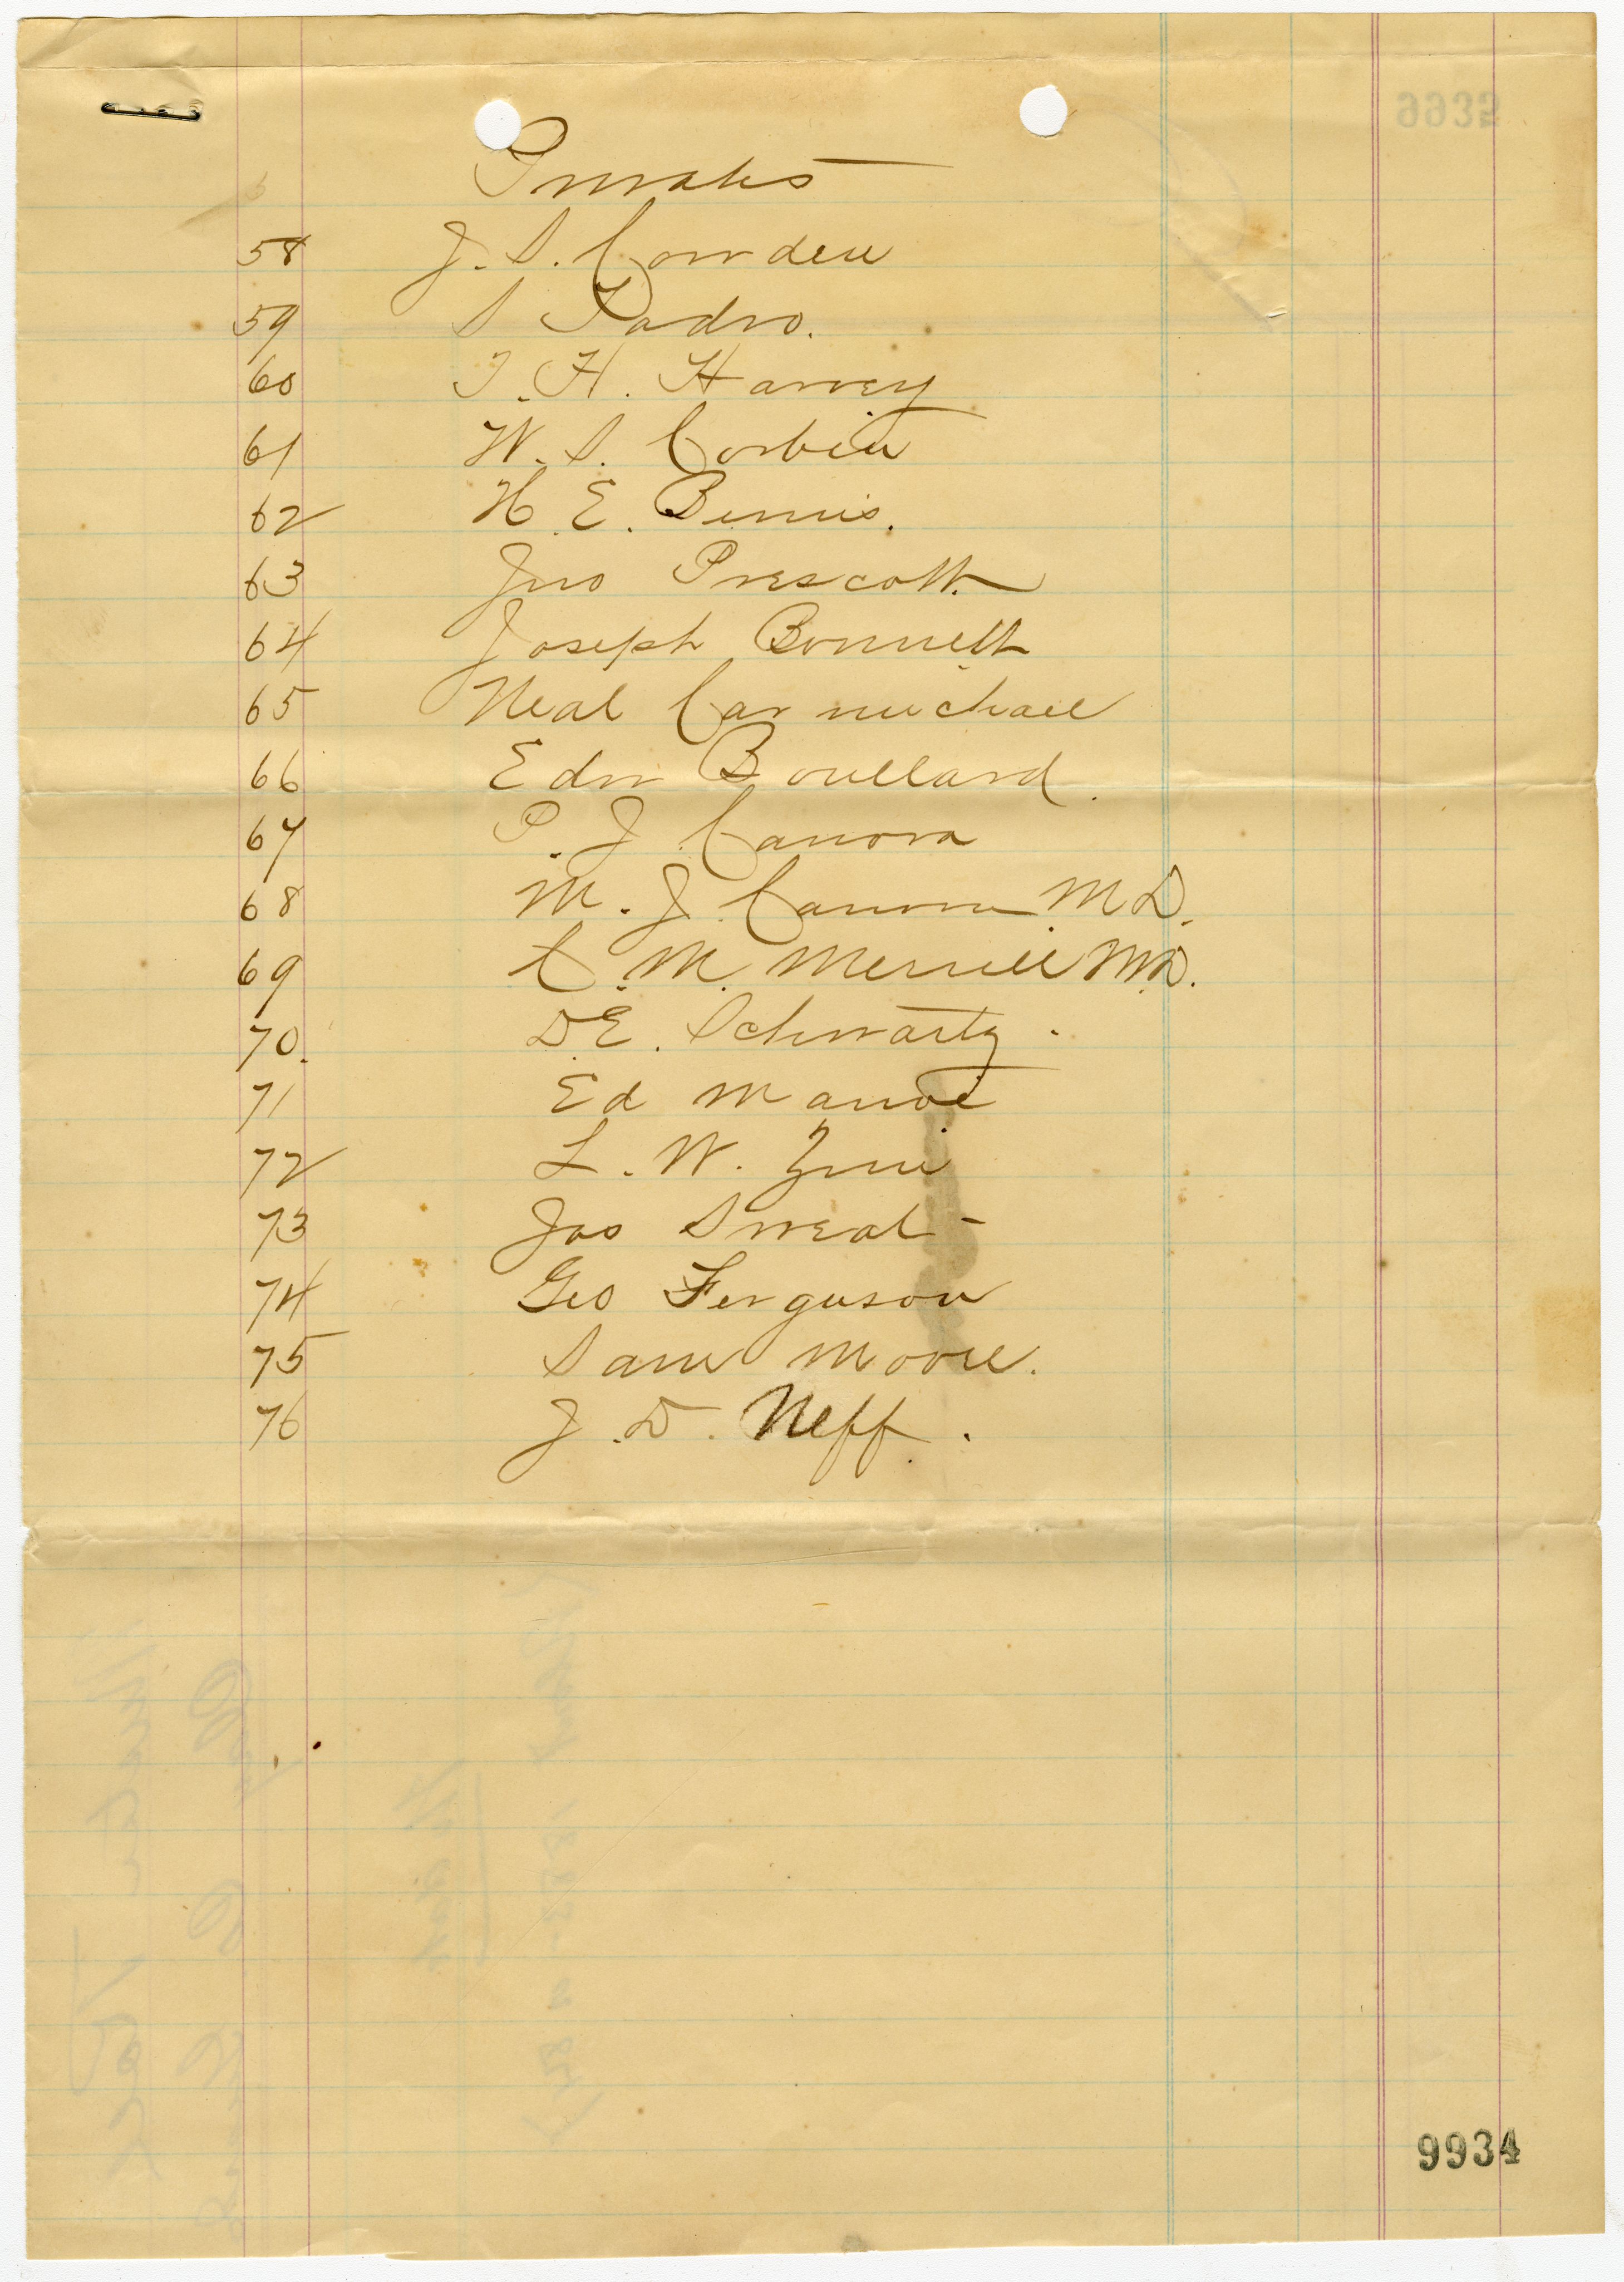 Privates
58 J. S. Cowden
59 S Padro.
60 T. H. Harvey
61 W. S. Corbin
62 H. E. Bemis.
63 Jno Prescott
64 Joseph Bonnett
65 Neal Carmichael
66 Edw Boullard.
67 P. J. Canova
68 M. J. Canova M D.
69 C. M. Merrill M.D.
70. D.E. Schwartz.
71 Ed
72 L. W.
73 Jas Sweat
74 Geo Ferguson
75 Sam Moore.
76 J. D. Neff.
9934